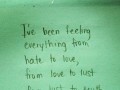 I've been feeling
everything from
hate to love,
from love to lust
from lust to